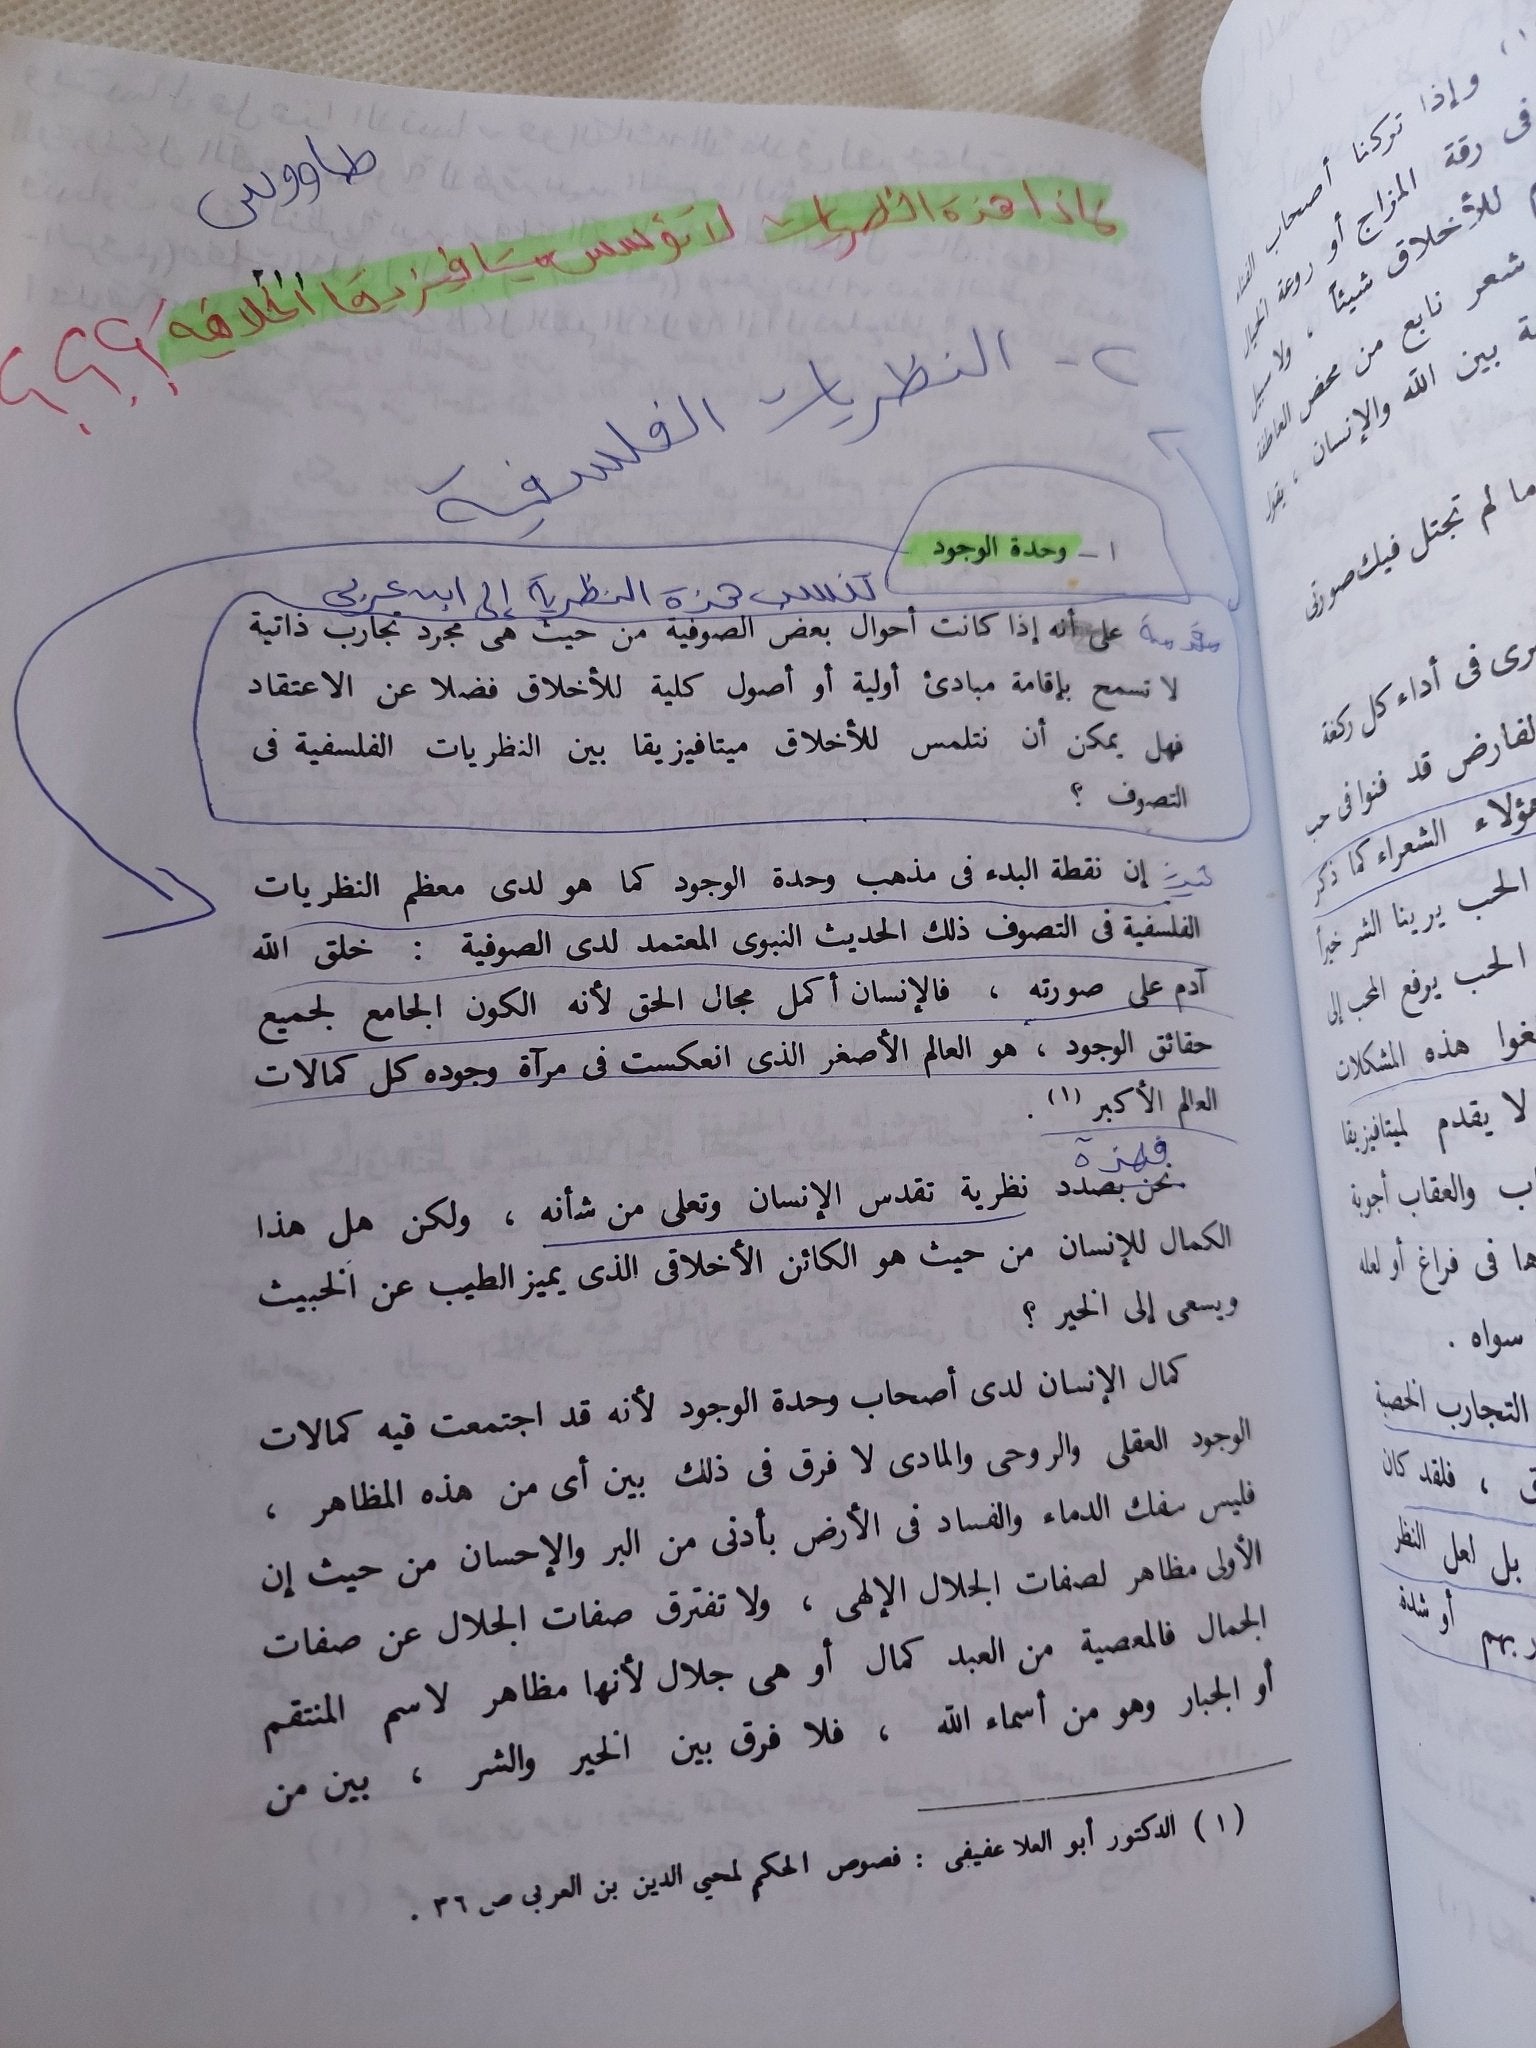 طاووس
لماذا هذه النظريات لا تؤسس ميتافيزيقا أخلاقية ؟؟؟؟
٢- النظريات الفلسفية
١ - وحدة الوجود
تنسب هذه النظرية إلى ابن عربي
مقدمة على أنه إذا كانت أحوال بعض الصوفية من حيث هى مجرد تجارب ذاتية
لا تسمح بإقامة مبادئ أولية أو أصول كلية للأخلاق فضلا عن الاعتقاد
فهل يمكن أن نتلمس للأخلاق ميتافيزيقا بين النظريات الفلسفية فى
التصوف ؟
إن نقطة البدء فى مذهب وحدة الوجود كما هو لدى معظم النظريات
الفلسفية فى التصوف ذلك الحديث النبوى المعتمد لدى الصوفية : خلق الله
آدم على صورته ، فالإنسان أكمل مجال الحق لأنه الكون الجامع لجميع
حقائق الوجود ، هو العالم الأصغر الذى انعكست فى مرآة وجوده كل كمالات
العالم الأكبر (١) .
فهذه
نحن بصدد نظرية تقدس الإنسان وتعلى من شأنه ، ولكن هل هذا
الكمال للإنسان من حيث هو الكائن الأخلاقى الذى يميز الطيب عن الخبيث
ويسعى إلى الخير ؟
كمال الإنسان لدى أصحاب وحدة الوجود لأنه قد اجتمعت فيه كمالات
الوجود العقلى والروحى والمادى لا فرق فى ذلك بين أى من هذه المظاهر ،
فليس سفك الدماء والفساد فى الأرض بأدنى من البر والإحسان من حيث إن
الأولى مظاهر لصفات الجلال الإلهى ، ولا تفترق صفات الجلال عن صفات
الجمال فالمعصية من العبد كمال أو هى جلال لأنها مظاهر لاسم المنتقم
أو الجبار وهو من أسماء الله ، فلا فرق بين الخير والشر ، بين من
(١) الدكتور أبو العلا عفيفى : فصوص الحكم لمحيي الدين بن العربى ص ٣٦ .
وإذا تركنا أصحاب الفناء
فى رقة المزاج أو روعة الخيال
للأخلاق شيئاً ، ولا سبيل
شعر نابع من محض العاطفة
بين الله والإنسان ، يقول
ما لم تجتل فيك صورتى
فى أداء كل ركعة
الفارض قد فنوا فى حب
هؤلاء الشعراء كما ذكر
الحب يرينا الشر خيراً
الحب يرفع المحب إلى
هذه المشكلات
لا يقدم لميتافيزيقا
والعقاب أجوبة
فى فراغ أو لعله
سواه .
التجارب الخصبة
، فلقد كان
بل لعل النظر
أو شذه